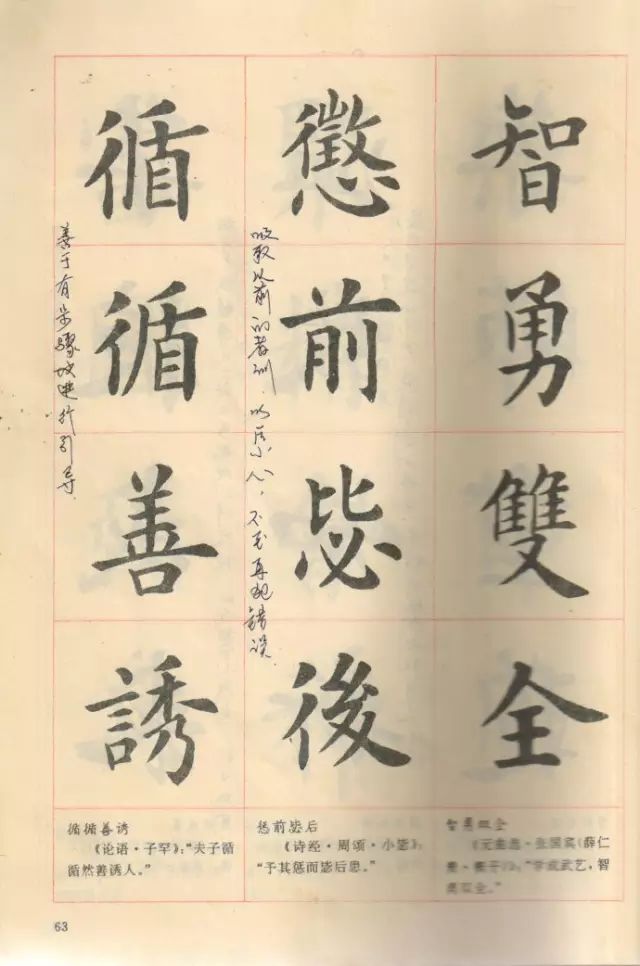 智勇雙全
懲前毖後
吸取以前的教训，以后小心，不至再犯错误
循循善誘
善于有步骤的进行引导
循循善诱
《论语·子罕》：“夫子循
循然善诱人。”
惩前毖后
《诗经·周颂·小毖》：
“予其惩而毖后患。”
智勇双全
《元曲选·张国宾〈薛仁
武艺，智
勇双全。”
63